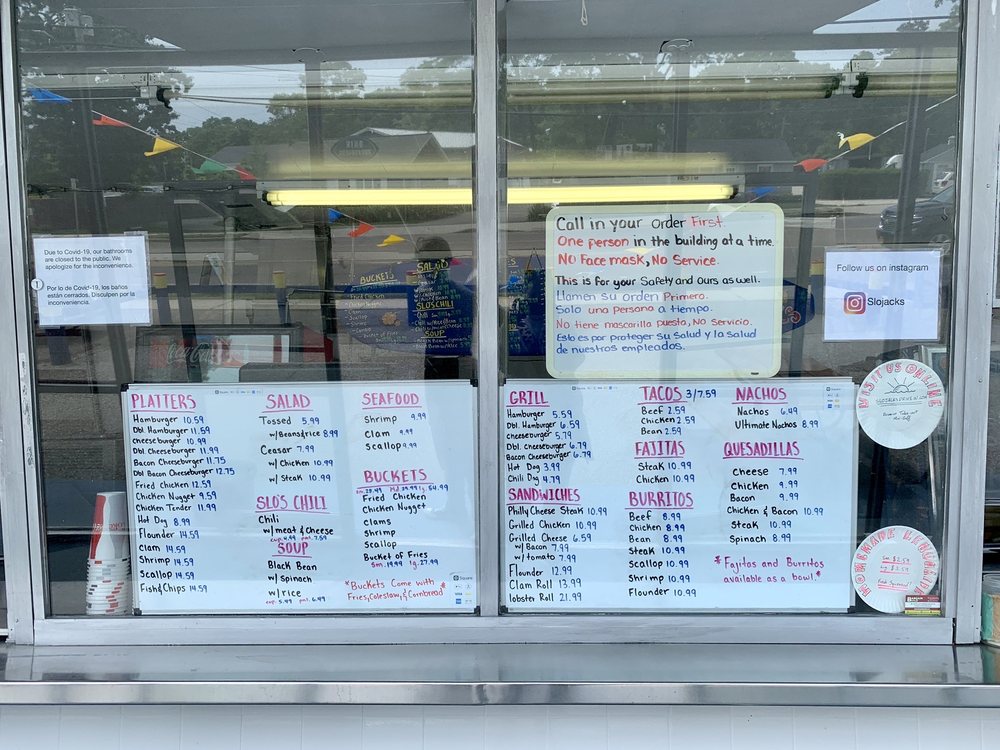 Due to Covid-19, our bathrooms
are closed to the public. We
apologize for the inconvenience.
Por lo de Covid-19, los baños
están cerrados. Disculpen por la
inconveniencia.
BUCKETS
SALAD
SLO'S CHILI
SOUP
Call in your order First.
One person in the building at a time.
No Face mask, No Service.
This is for your Safety and ours as well.
Llamen su orden Primero.
Solo una persona a tiempo.
No tiene mascarilla puesta, No servicio.
Esto es por proteger su salud y la salud
de nuestros empleados.
Follow us on instagram
Slojacks
VISIT US ONLINE
PLATTERS
Hamburger 10.59
Dbl. Hamburger 11.59
cheeseburger 10.99
Dbl. Cheeseburger 11.99
Bacon Cheeseburger 11.75
Dbl Bacon Cheeseburger 12.75
Fried Chicken 12.59
Chicken Nugget 9.59
Chicken Tender 11.99
Hot Dog 8.99
Flounder 14.59
Clam 14.59
Shrimp 14.59
Scallop 14.59
Fish & Chips 14.59
SALAD
Tossed 5.99
w/Beans&rice 8.99
Ceasar 7.99
w/ Chicken 10.99
w/ Steak 10.99
SLO'S CHILI
Chili
w/meat & Cheese
SOUP
Black Bean
w/ Spinach
w/ rice
cup 5.49 pnt. 6.99
SEAFOOD
Shrimp 9.99
Clam 9.99
Scallop 9.99
BUCKETS
Fried Chicken
Chicken Nugget
Clams
Shrimp
Scallop
Bucket of Fries
Sm. 19.99 lg. 27.99
*Buckets Come with
Fries, Coleslaw, & Cornbread*
Square
GRILL
Hamburger 5.59
Dbl. Hamburger 6.59
cheeseburger 5.79
Dbl. Cheeseburger 6.79
Bacon Cheeseburger 6.79
Hot Dog 3.99
Chili Dog 4.79
SANDWICHES
Philly Cheese Steak 10.99
Grilled Chicken 10.99
Grilled Cheese 6.59
w/ Bacon 7.99
w/ tomato 7.99
Flounder 12.99
Clam Roll 13.99
lobster Roll 21.99
TACOS 3/7.59
Beef 2.59
Chicken 2.59
Bean 2.59
FAJITAS
Steak 10.99
Chicken 10.99
BURRITOS
Beef 8.99
Chicken 8.99
Bean 8.99
Steak 10.99
Scallop 10.99
Shrimp 10.99
Flounder 10.99
NACHOS
Nachos 6.49
Ultimate Nachos 8.99
QUESADILLAS
Cheese 7.99
Chicken 9.99
Bacon 9.99
Chicken & Bacon 10.99
Steak 10.99
Spinach 8.99
*Fajitas and Burritos
available as a bowl.*
HOMEMADE LEMONADE
Sm $2.59